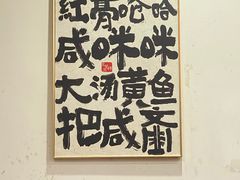 红膏呛哈
咸咪咪
大汤黄鱼
把咸齑